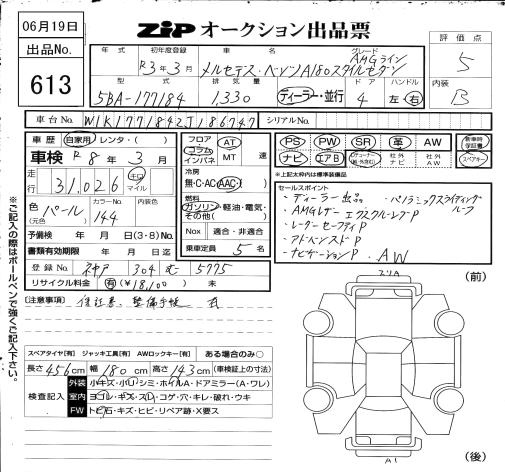 06月19日
出品No.
613
ZiP オークション出品票
評価点
5
内装
B
年式 初年度登録 車名 グレード
R3年3月 メルセデス・ベンツA180スタイルセダン AMGライン
型式 排気量 ドア ハンドル
5BA-177184 1,330 ディーラー・並行 4 左・右
車台No. W1K1771842J186747 シリアルNo.
車歴 自家用・レンタ・( )
車検 R8年3月
走行 31,026 キロ マイル
色(元色) パール カラーNo. 144
予備検 年 月 日(3・8)No.
書類有効期限 年 月 日
登録No. 神戸 304 む 5775
リサイクル料金 有(¥18,100) 未
フロア コラム インパネ AT MT 速
冷房 無・C・AC・AAC・( )
燃料 ガソリン・軽油・電気・その他( )
Nox 適合・非適合
乗車定員 5名
PS PW SR 革 AW 新車時保証書
ナビ エアB TVチューナー(純・外含む) 社外ナビ 社外AW スペアキー
※上記太枠内は標準装備品
セールスポイント
・ディーラー出品 ・パノラミックスライディングルーフ
・AMGレザーエクスクルーシブP
・レーダーセーフティP
・アドバンスドP
・ナビゲーションP ・AW
[注意事項] 保証書、整備手帳 有
※ご記入の際はボールペンで強くご記入下さい。
スペアタイヤ[有] ジャッキ工具[有] AWロックキー[有] ある場合のみ○
長さ456cm 幅180cm 高さ143cm (車検証上の寸法)
検査記入
外装 小キズ・小凹・シミ・ホイルA・ドアミラー(A・ワレ)
室内 ヨゴレ・キズ・スレ・コゲ・穴・キレ・破れ・ウキ
FW トビ石・キズ・ヒビ・リペア跡・X要ス
(前)
スリA
A1
(後)